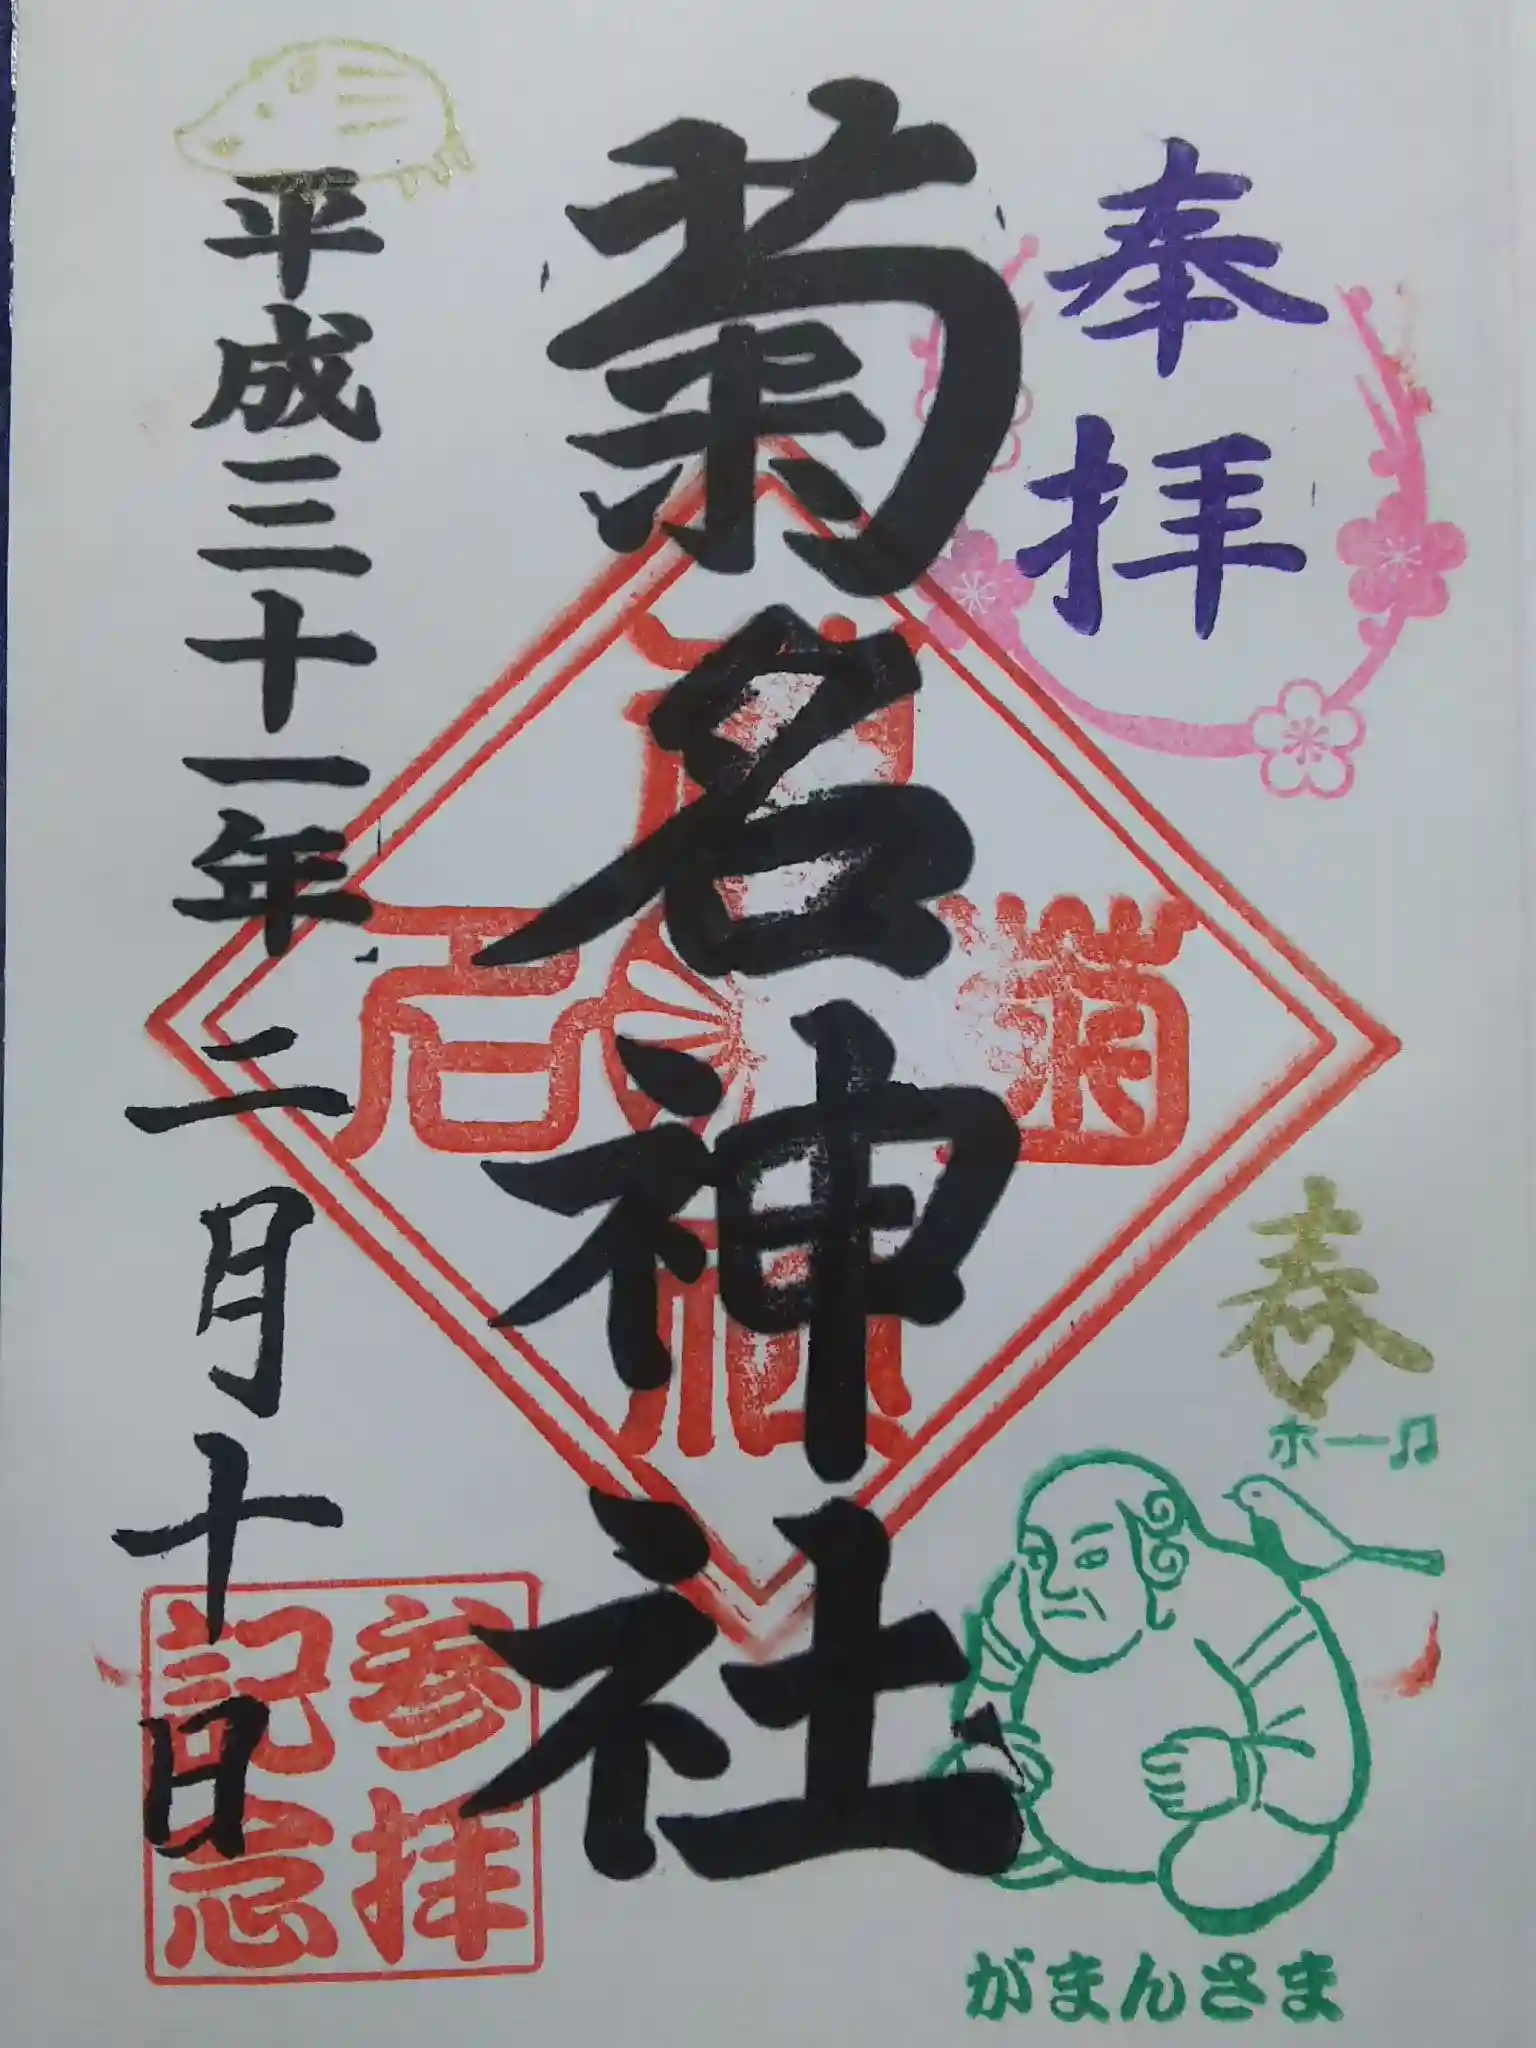 奉拝
春
ホー♫
がまんさま
菊名神社
菊名神社
平成三十一年二月十日
参拝
記念